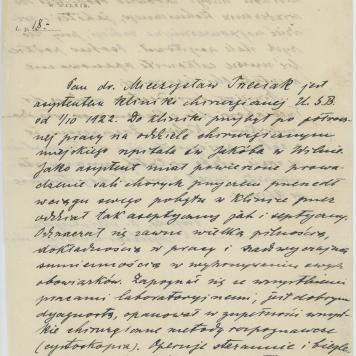 18.-
Pan dr. Mieczysław Treciak jest
asystentem kliniki chirurgicznej U.S.B.
od 1/IO 1922. Do kliniki przybył po
nej pracy na oddziele chirurgicznym
miejskiego szpitala św. Jakóba w Wilnie.
Jako asystent miał powierzone prowa-
dzenie sali chorych przyczem przeszedł
w ciągu swego pobytu w klinice przez
oddział tak aseptyczny jak i septyczny.
Odznaczał się zawsze wielką pilnością,
dokładnością w pracy i nadzwyczajną
sumiennością w wykonywaniu swych
obowiązków. Zapoznał się ze wszystkiemi
pracami laboratoryjnemi, jest dobrym
dyagnostą, opanował w zupełności wszyst-
kie chirurgiczne metody rozpoznawcze
(cystoskopia). Operuje starannie i biegle